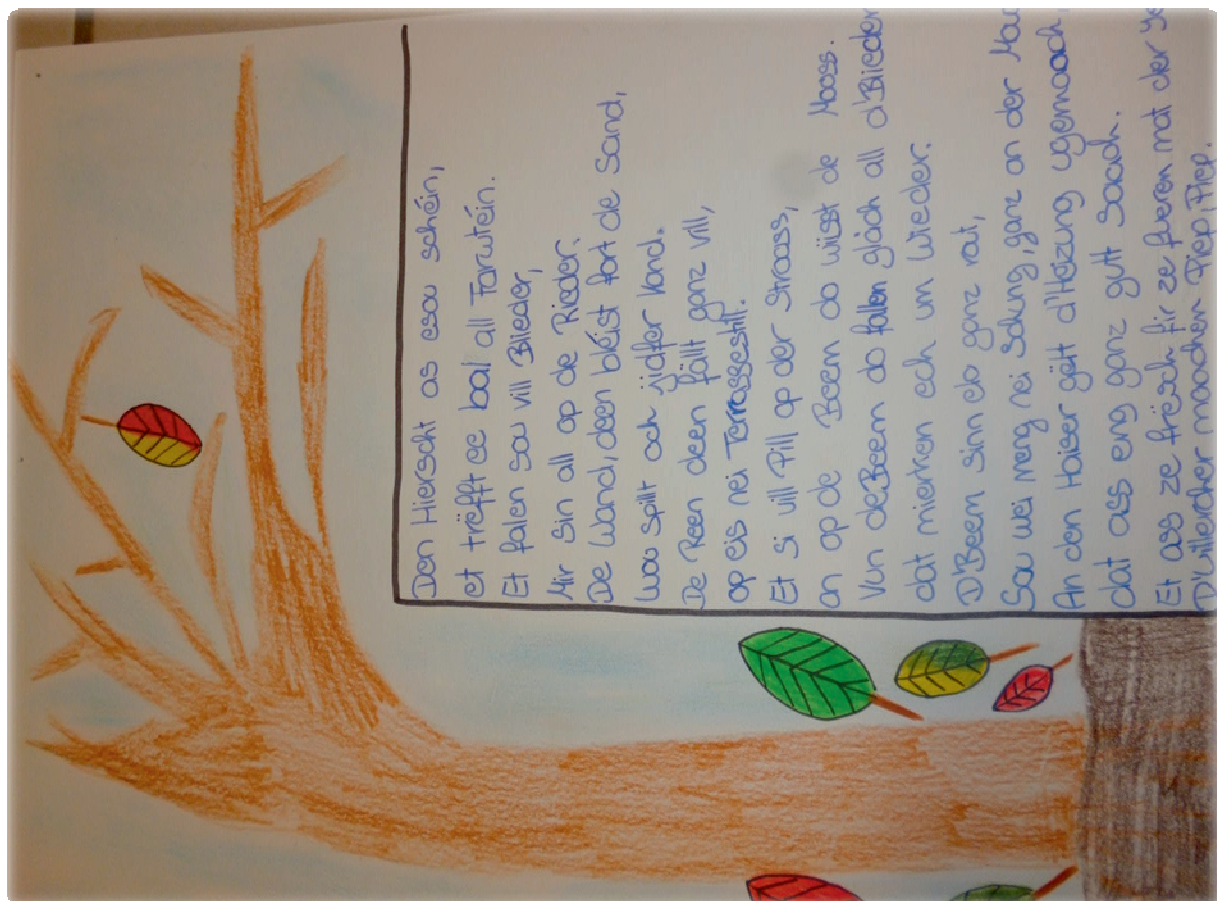 Den Hierscht as esou schéin,
et trëfft ee bal all Farwtéin.
Et falen sou vill Blieder,
Mir sin all op de Rieder.
De Wand, deen bléist fort de Sand,
Wou spillt och jidfer Kand.
De Reen deen fällt ganz vill,
op eis nei Terrassgestill.
Et si vill Pill op der Strooss,
an op de Beem do wiisst de Mooss.
Vun de Beem do falen gläch all d'Blieder
dat mierken ech um Wieder.
D'Beem sinn elo ganz rout,
Sou wei meng nei Sakung, ganz an der
An den Haiser gëtt d'Heizung ugemaach,
dat ass eng ganz gutt Saach.
Et ass ze frësch fir ze fueren mat der
D'Villercher maachen Piep, Piep.